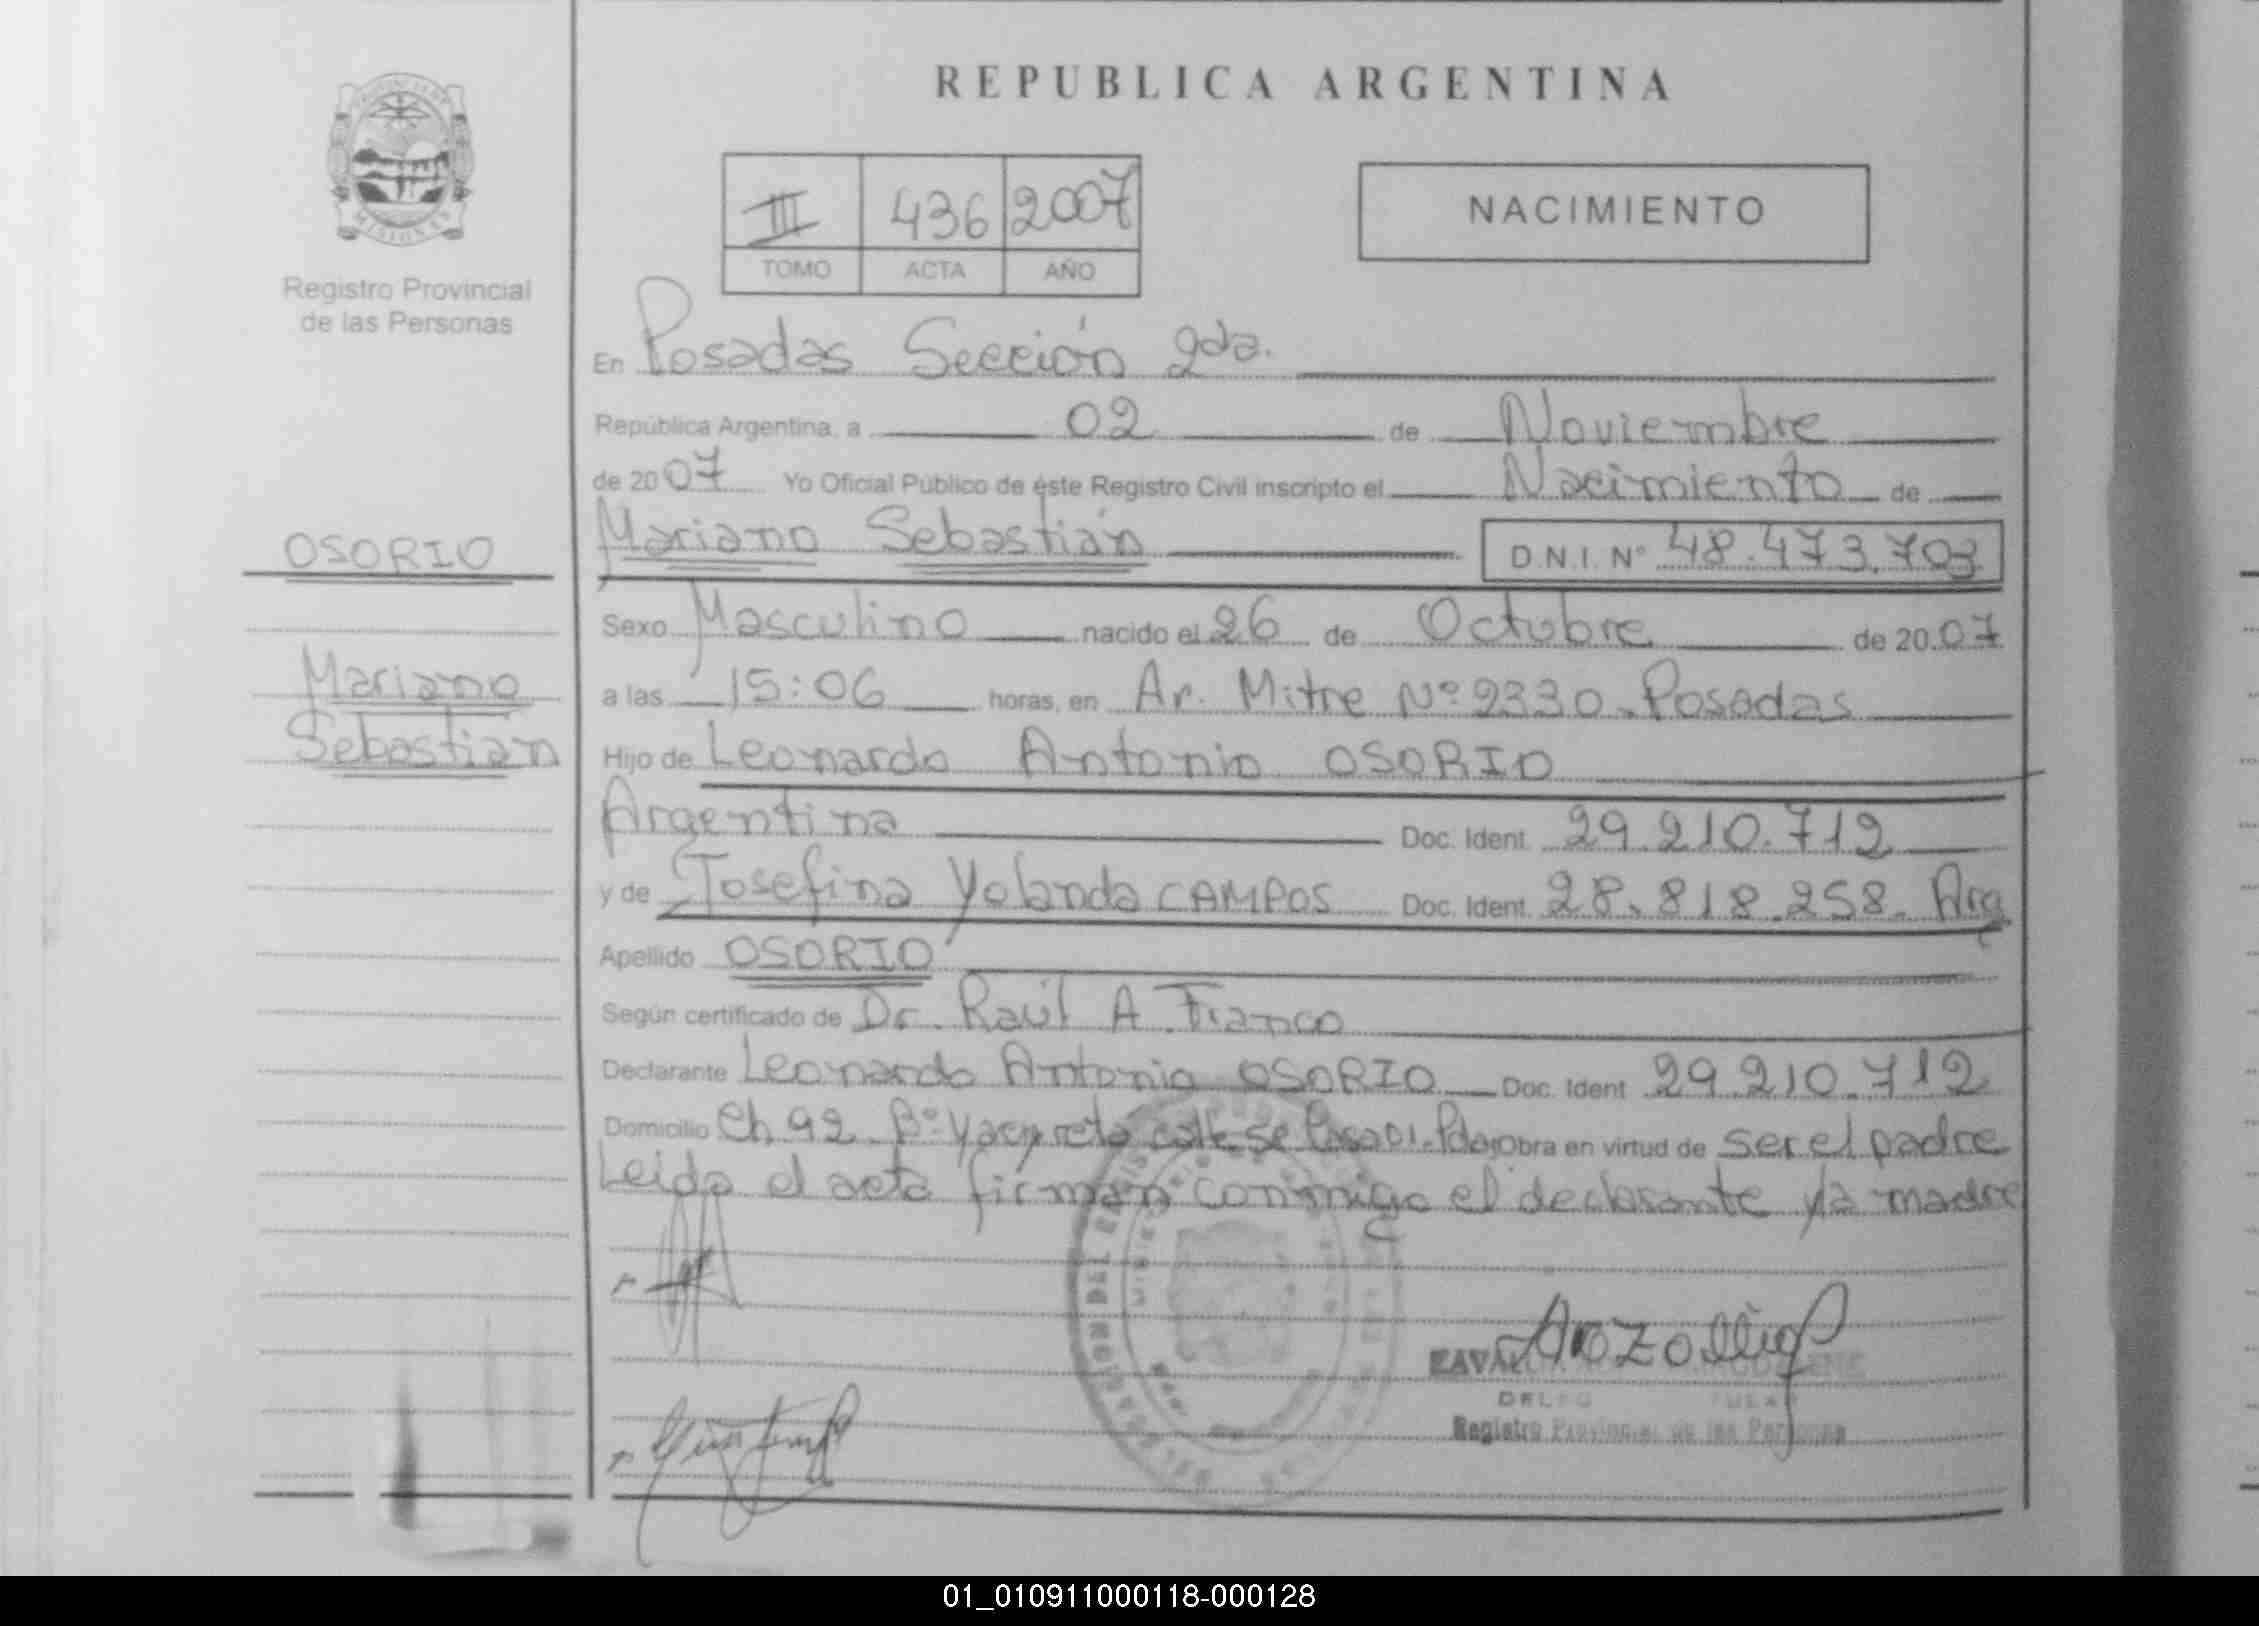 REPUBLICA ARGENTINA
PROVINCIA DE
MISIONES
Registro Provincial
de las Personas
III 436 2007
TOMO ACTA AÑO
NACIMIENTO
En Posadas Sección 2da.
República Argentina, a 02 de Noviembre
de 2007 Yo Oficial Público de éste Registro Civil inscripto el Nacimiento de
OSORIO
Mariano Sebastián D.N.I. Nº 48.473.703
Sexo Masculino nacido el 26 de Octubre de 2007
Mariano
Sebastián
a las 15:06 horas, en Av. Mitre Nº 2330. Posadas
Hijo de Leonardo Antonio OSORIO
Argentina Doc. Ident. 29.210.712
y de Josefina Yolanda CAMPOS Doc. Ident. 28.818.258. Arg
Apellido OSORIO
Según certificado de Dr. Raúl A. Franco
Declarante Leonardo Antonio OSORIO Doc. Ident 29.210.712
Domicilio Ch. 92 Bº Yacyreta calle Obra en virtud de ser el padre
Leida el acta firman conmigo el declarante y la madre
DEL REGISTRO
Registro Provincial de las Personas
01_010911000118-000128